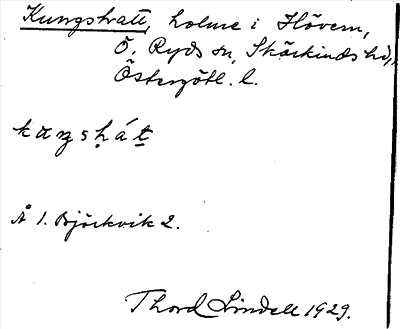 Kungshatt, holme i Hövern,
Ö. Ryds sn, Skärkinds hd,
Östergötl. l.
kuŋshát
Å 1. Björkvik 2.
Thord Lindell 1929.